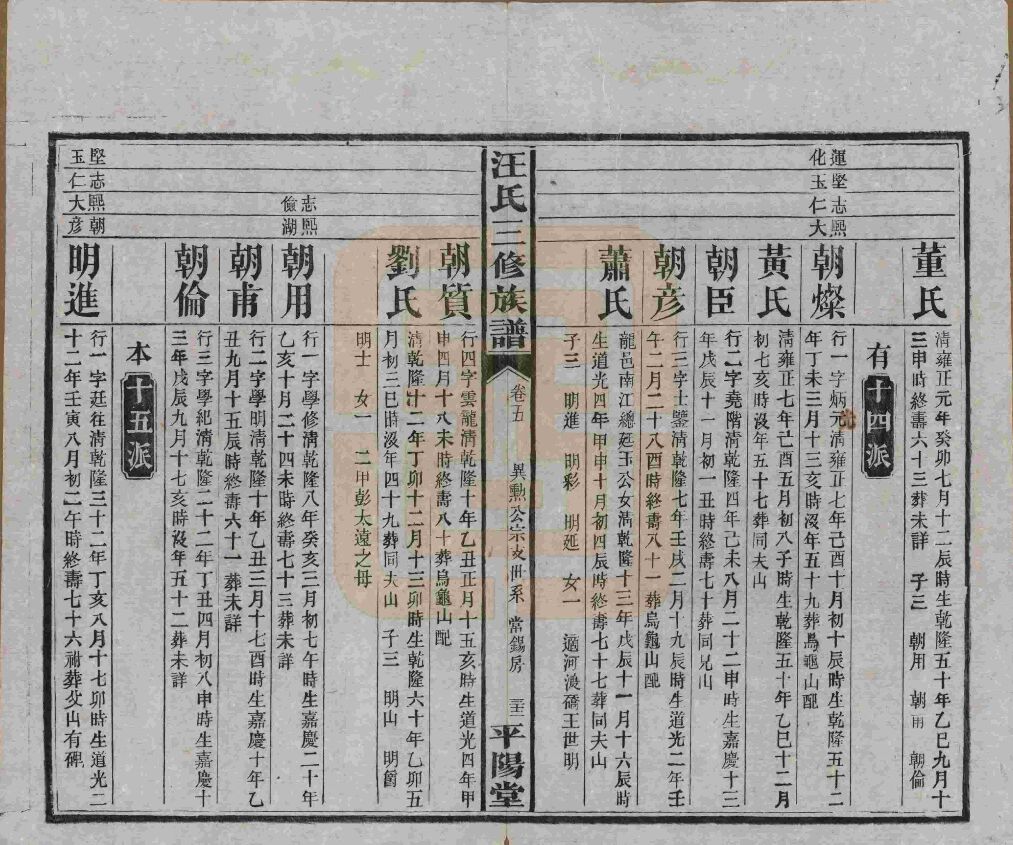 董氏
清雍正元年癸卯七月十二辰時生乾隆五十年乙巳九月十
三申時終壽六十三葬未詳　子三　朝用　朝甫　朝倫
有十四派
運堅志熙
化玉仁大
朝燦
行一字炳元清雍正七年己酉十月初十辰時生乾隆五十二
年丁未三月十三亥時沒年五十九葬烏龜山配
黃氏
清雍正七年己酉五月初八子時生乾隆五十年乙巳十二月
初七亥時沒年五十七葬同夫山
朝臣
行二字堯階清乾隆四年己未八月二十二申時生嘉慶十三
年戊辰十一月初一丑時終壽七十葬同兄山
朝彥
行三字士鑒清乾隆七年壬戌二月十九辰時生道光二年壬
午二月二十八酉時終壽八十一葬烏龜山配
蕭氏
龍邑南江總延玉公女清乾隆十三年戊辰十一月十六辰時
生道光四年甲申十月初四辰時終壽七十七葬同夫山
子三　明進　明彩　明延　女一　適河浸礄王世明
汪氏三修族譜
卷五
異勲公宗支世系　當錫房
平陽堂
朝質
行四字雲龍清乾隆十年乙丑正月十五亥時生道光四年甲
申四月十八未時終壽八十葬烏龜山配
劉氏
清乾隆十二年丁卯十二月十三卯時生乾隆六十年乙卯五
月初三巳時沒年四十九葬同夫山　子三　明山　明爵
明士　女一　二甲彭大遠之母
志熙
儉湖
朝用
行一字學修清乾隆八年癸亥三月初七午時生嘉慶二十年
乙亥十月二十四未時終壽七十三葬未詳
朝甫
行二字學明清乾隆十年乙丑三月十七酉時生嘉慶十年乙
丑九月十五辰時終壽六十一葬未詳
朝倫
行三字學紀清乾隆二十二年丁丑四月初八申時生嘉慶十
三年戊辰九月十七亥時沒年五十二葬未詳
本十五派
堅志熙朝
玉仁大彥
明進
行一字廷往清乾隆三十二年丁亥八月十七卯時生道光二
十二年壬寅八月初二午時終壽七十六祔葬父山有碑